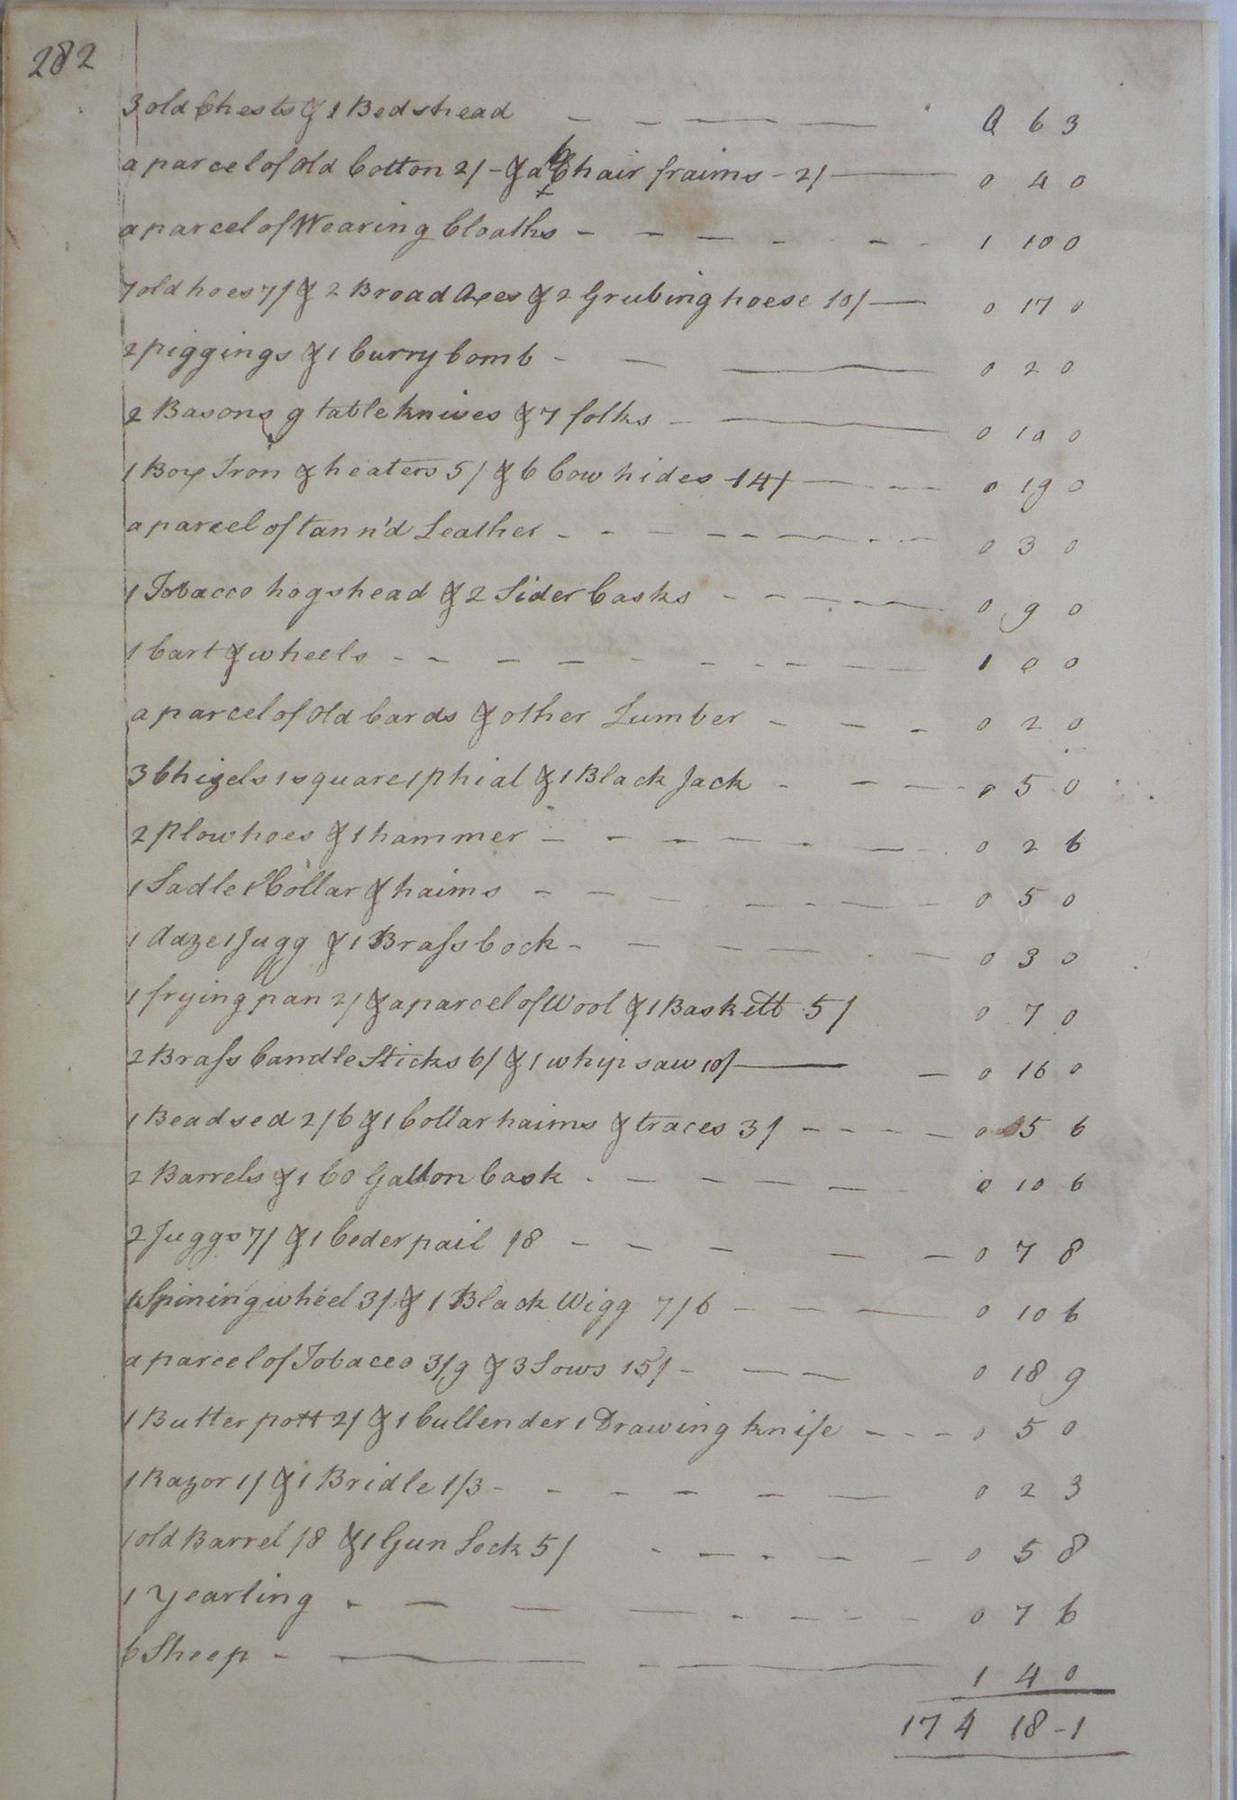 282
3 old Chests & 1 Bedsthead — — — — 0 6 3
a parcel of old Cotton 2/ - & a Chair fraims - 2/ — 0 4 0
a parcel of Wearing Cloaths - - - - - - 1 10 0
7 old hoes 7/ & 2 Broad Axes & 2 Grubing hoese 10/ — 0 17 0
2 piggings & 1 Curry Comb - — — 0 2 0
2 Basons 9 table knives & 7 folks - — 0 10 0
1 Box Iron & heaters 5/ & 6 Cow hides 14/ — - - 0 19 0
a parcel of tann'd Leather - - - - - - - - 0 3 0
1 Tobacco hogshead & 2 Sider Casks - - - - - 0 9 0
1 Cart & wheels - - - - - - - - - 1 0 0
a parcel of old Cards & other Lumber - - - 0 2 0
3 Chizels 1 square 1 phial & 1 Black Jack - - - 0 5 0
2 Plow hoes & 1 hammer - - - - - - 0 2 6
1 Sadle 1 Collar & haims - - - - - - - 0 5 0
1 Adze 1 Jugg & 1 Brass Cock - - - - - 0 3 0
1 frying pan 2/ & a parcel of Wool & 1 Baskett 5/ 0 7 0
2 Brass Candle Sticks 6/ & 1 whip saw 10/ — - 0 16 0
1 Beadsed 2/6 & 1 Collar haims & traces 3/ - - - - 0 5 6
2 Barrels & 1 60 Gallon Cask - - - - - - 0 10 6
2 Juggs 7/ & 1 Ceder pail /8 - - - - - 0 7 8
1 Spining wheel 3/ & 1 Black Wigg 7/6 - - — 0 10 6
a parcel of Tobacco 3/9 & 3 Sows 15/ - - — 0 18 9
1 Butter pott 2/ & 1 Cullender 1 Drawing knife - - - 0 5 0
1 Razor 1/ & 1 Bridle 1/3 - - - - - — 0 2 3
1 old Barrel /8 & 1 Gun Lock 5/ - - - - - 0 5 8
1 Yearling - - - - - - - - 0 7 6
6 Sheep - — - — 1 4 0
174 18 - 1